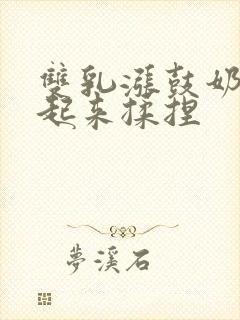 雙乳漲鼓奶
起来揉捏
夢溪石